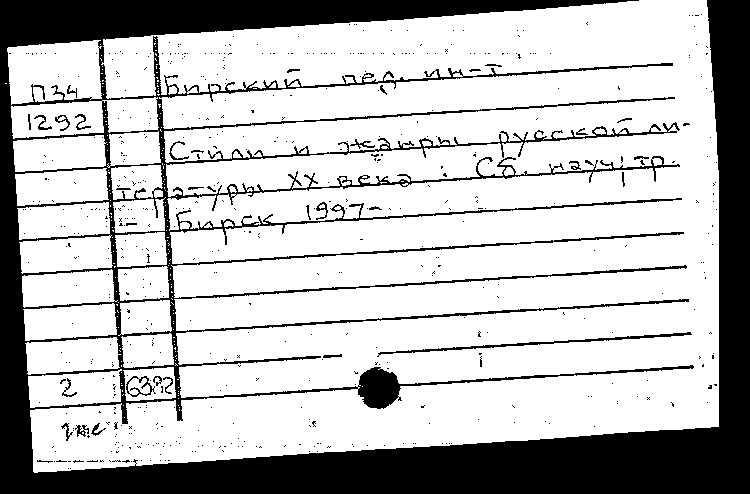 П34 Бирский пед. ин-т
1292
Стили и жанры русской ли-
тературы XX века : Сб. науч. тр.
- Бирск, 1997-
2 6382